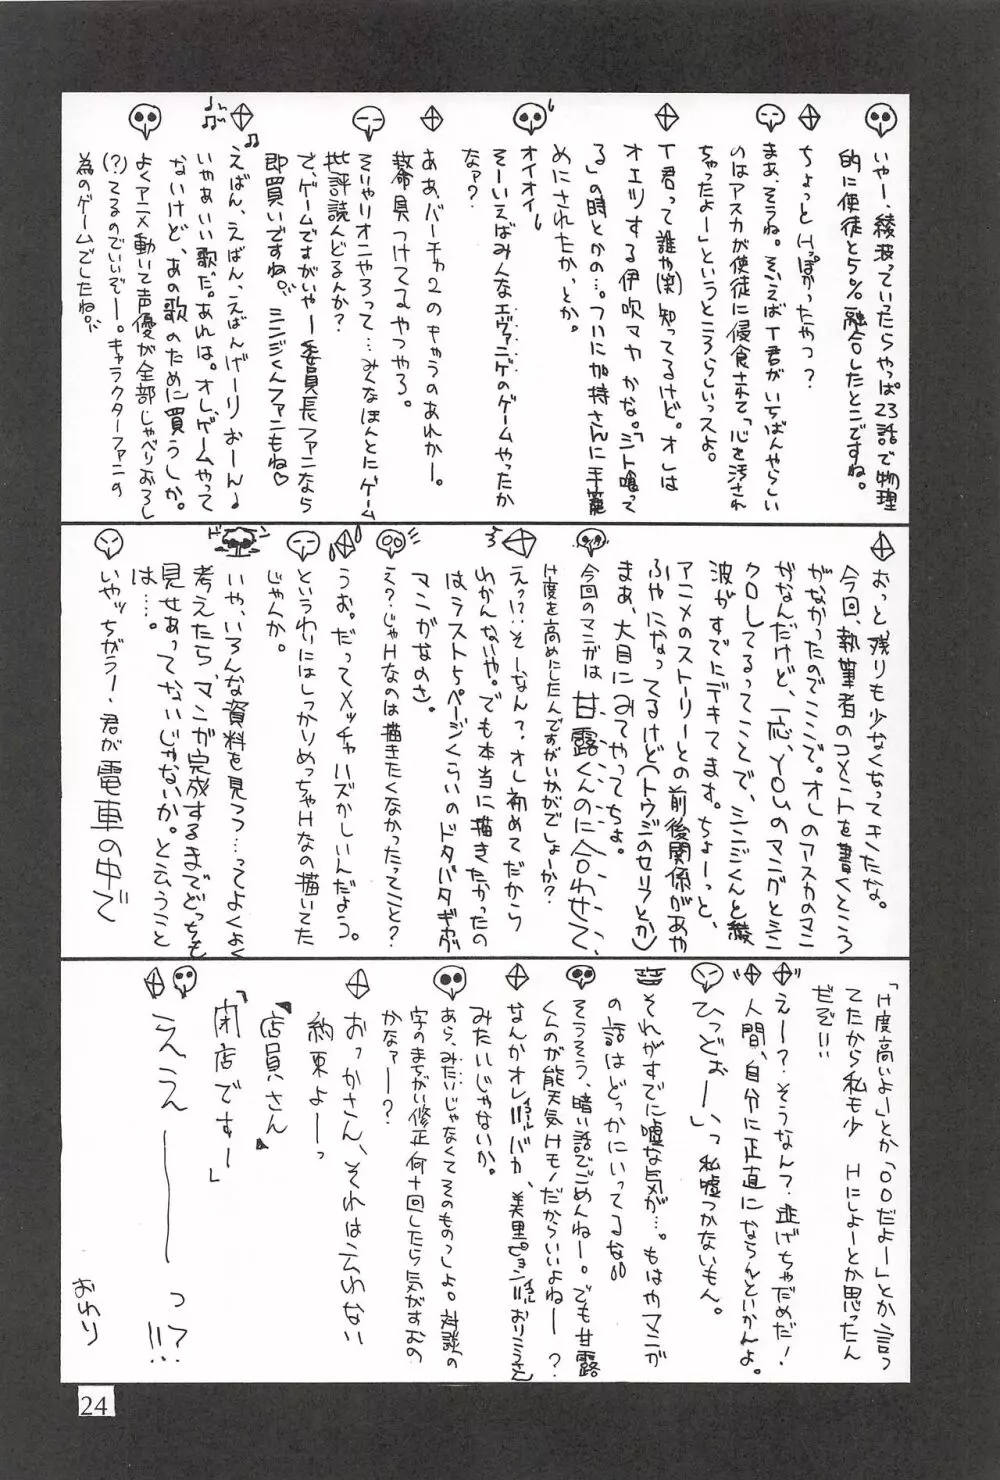 いやー、綾波っていったらやっぱ23話で物理
的に使徒と5%融合したとこですね。
ちょっとHっぽかったやつ？
まあ、そうね。そいえばT君がいちばんやらしい
のはアスカが使徒に侵食されて「心を汚され
ちゃったよー」というところらしいっスよ。
T君って誰や(笑)知ってるけど。オレは
オエツする伊吹マヤかな。「シト喰って
る」の時とかの…。ついに加持さんに手篭
めにされたか、とか。
オイオイ
そーいえばみんなエヴァンゲのゲームやったか
なァ？
ああ、バーチャ2のキャラのあれかー。
拷問具つけてるやつやろ。
そりゃリオニやろって…みんなほんとにゲーム
批評読んどるんか？
で、ゲームですがいやー委員長ファンなら
即買いですね。シンジくんファンもね♡
えばん、えばん、えばんげーりおーん♪
いやぁいい歌だ。あれは。オレ、ゲームやって
ないけど、あの歌のために買うしか。
よくアニメ動いて声優が全部しゃべりおろし
(?)てるのでいいぞー。キャラクターファンの
為のゲームでしたね。
おっと残りも少なくなってキたな。
今回、執筆者のコメントを書くところ
がなかったのでここで。オレのアスカのマン
ガなんだけど、一応、YOUのマンガとシン
クロしてるってことで、シンジくんと綾
波がすでにデキてます。ちょーっと、
アニメのストーリーとの前後関係があや
ふやになってるけど(トウジのセリフとか)
まあ、大目にみてやってちょ。
今回のマンガは甘露くんのに合わせて
H度を高めにしたんですがいかがでしょーか？
えっ!?そーなん？オレ初めてだから
わかんないや。でも本当に描きたかったの
はラスト5ページくらいのドタバタギャグ
マンガなのさ。
え？じゃHなのは描きたくなかったってこと？
うお。だってメッチャハズかしいんだよう。
というわりにはしっかりめっちゃHなの描いてた
じゃんか。
いや、いろんな資料を見つつ…ってよくよく
考えたら、マンガ完成するまでどっちも
見せあってないじゃないか。と云うこと
は…。
いやッちがうー、君が電車の中で
「H度高いよー」とか「〇〇だよー」とか言っ
てたから私も少しHにしよーとか思ったん
だぞ!!
えー？そうなん？逃げちゃだめだ！
人間、自分に正直にならんといかんよ。
ひっどぉーいっ私嘘つかないもん。
それがすでに嘘な気が…。もはやマンガ
の話はどっかにいってるな。
そうそう、暗い話でごめんねー。でも甘露
くんのが能天気HモノだからいいよねーP?
なんかオレ＝バカ、美里ぴょん＝おりこうさん
みたいじゃないか。
あら、みたいじゃなくてそのものっしょ。対談の
字のまちがい修正何十回したら気がすむの
かなァー？
おっかさん、それは云わない
約束よーっ
店員さん
「閉店ですー」
ええーーーーーっ?!!
おわり
24